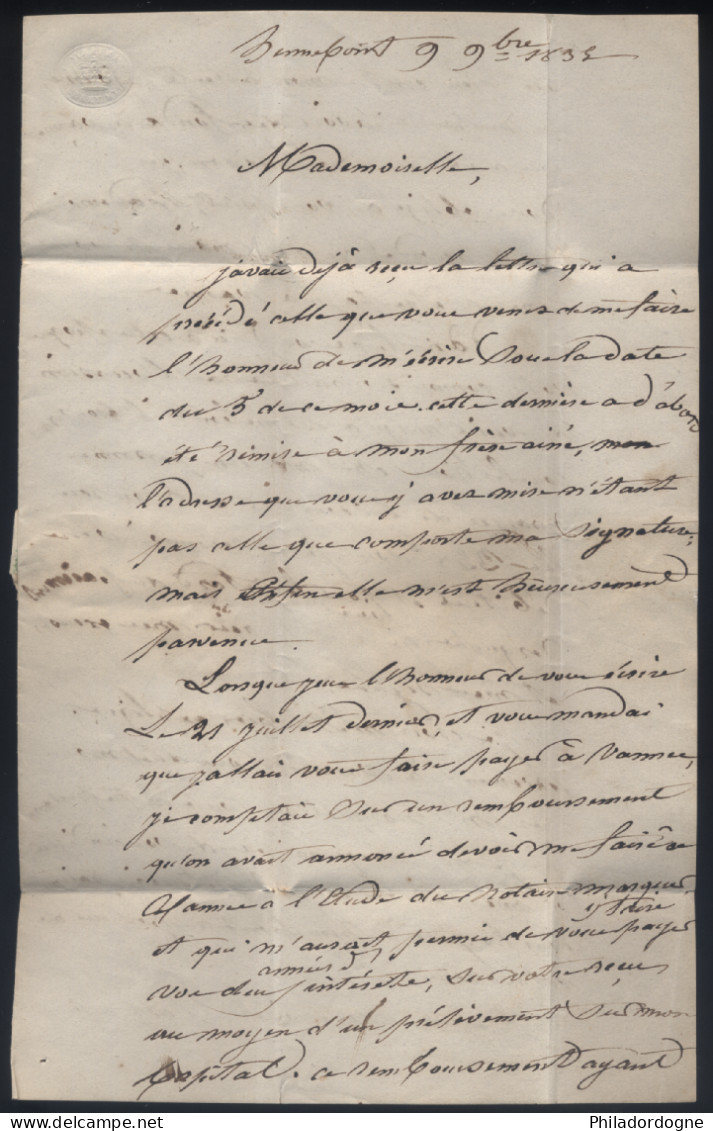 9 9bre 1835
Mademoiselle,
j'avais dejà reçu la lettre qui a
précédé celle que vous venez de me faire
l'honneur de m'écrire sous la date
du 3 de ce mois. cette dernière a d'abord
été remise à mon frère ainé,
l'adresse que vous y avez mise n'étant
pas celle que comporte ma signature,
mais enfin elle m'est heureusement
parvenue.
Lorsque j'eus l'honneur de vous écrire
Le 21 juillet dernier, et vous mandai
que j'allais vous faire payer à Vannes,
je comptais sur un remboursement
qu'on avait annoncé devoir me faire a
Vannes à l'Etude du Notaire
y faire
et qui m'aurait permis de vous payer
années d'
vos deux intérêts, sur votre reçu,
au moyen d'un prélèvement sur mon
Capital. ce remboursement ayant
© Philadordogne.com